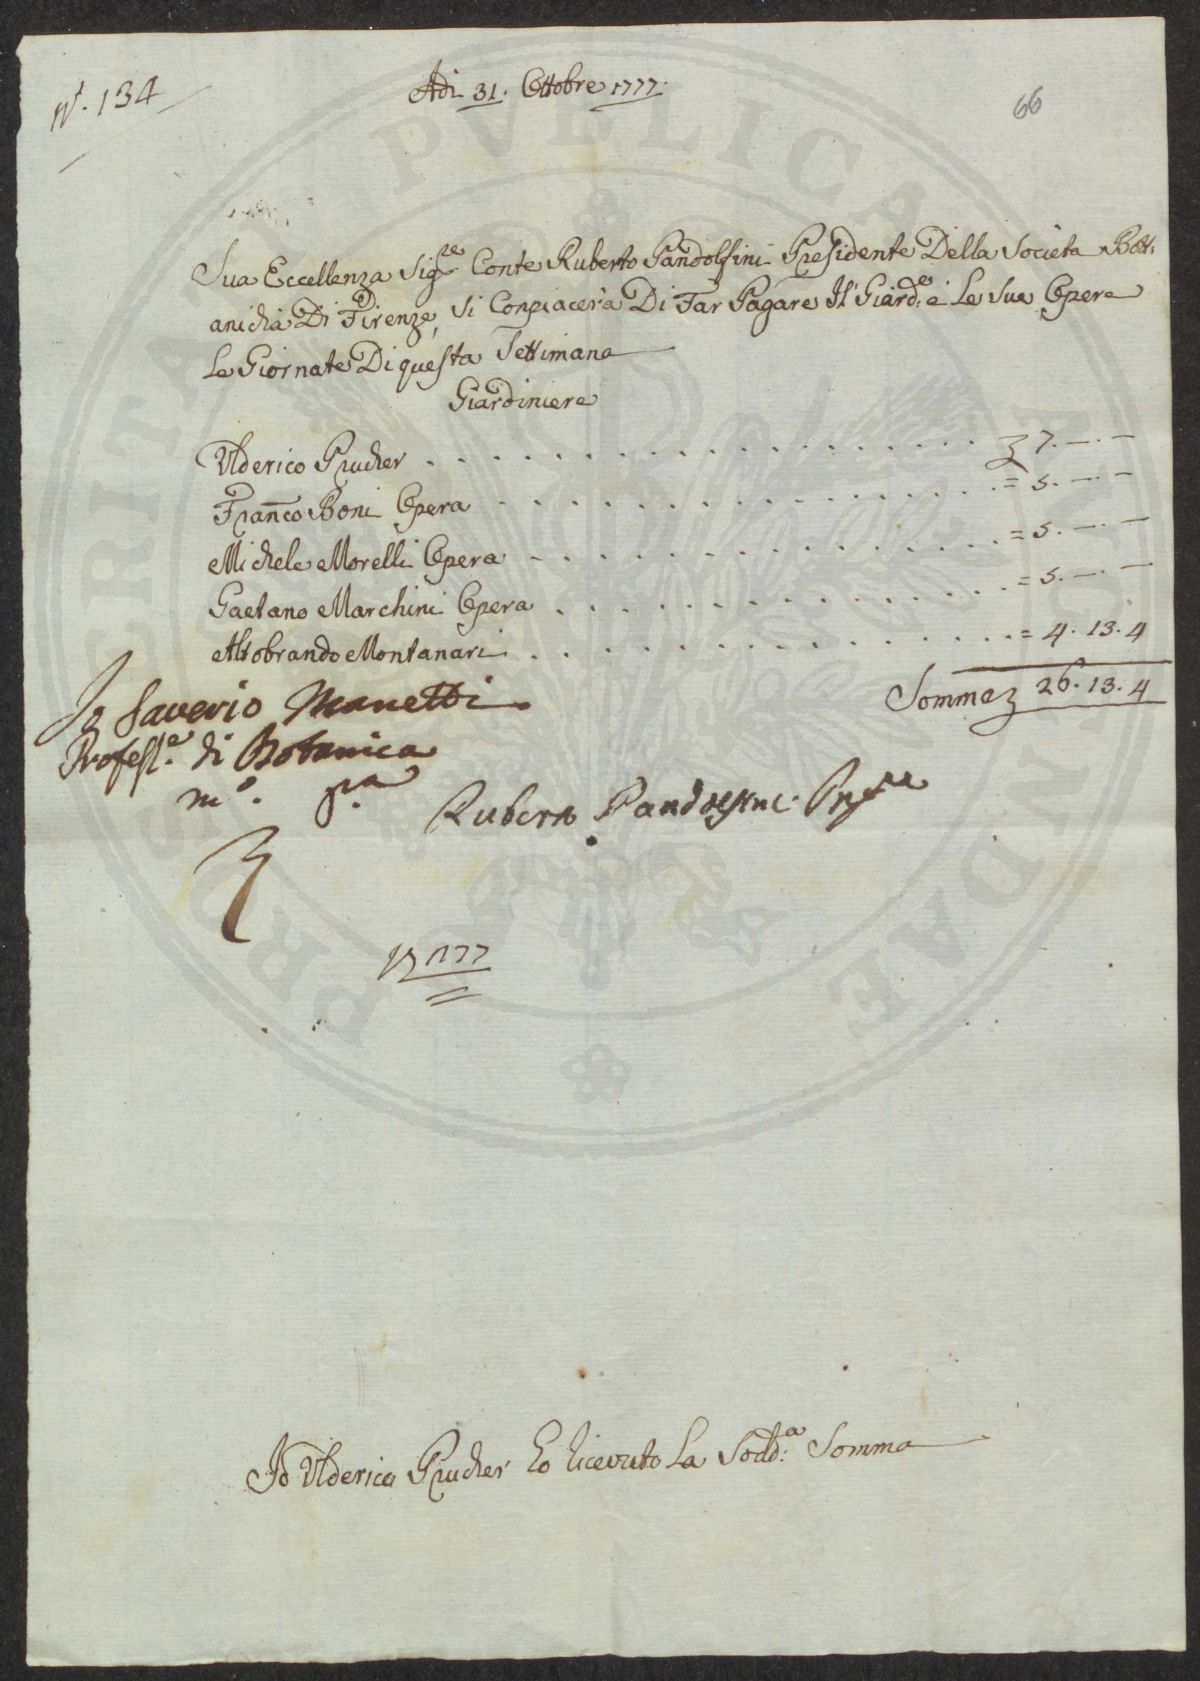 N.° 134
Adi 31. Ottobre 1777.
66
Sua Eccellenza Sig.re Conte Ruberto Pandolfini Presidente Della Società Bott:
anicha Di Firenze, Si Conpiacerà Di Far Pagare Il Giard.e é Le Sue Opere
Le Giornate Di questa Settimana
Giardiniere
Ulderico Prucher . . . . . . . . . . . . . 7. — . —
Fran̄co Boni Opera . . . . . . . . . . . . = 5. — . —
Michele Morelli Opera - . . . . . . . . . . = 5. — . —
Gaetano Marchini Opera . . . . . . . . . . = 5. — . —
Altobrando Montanari . . . . . . . . . . . = 4. 13. 4
Somma 26. 13. 4
Io Saverio Manetti
Profess.e di Botanica
m.o p.a
Ruberto Pandolfini Pres.te
1777
Io Ulderico Prucher Eo Ricevuto La Sodd.a Somma
PROSPERITATI PVBLICAE AVGENDAE